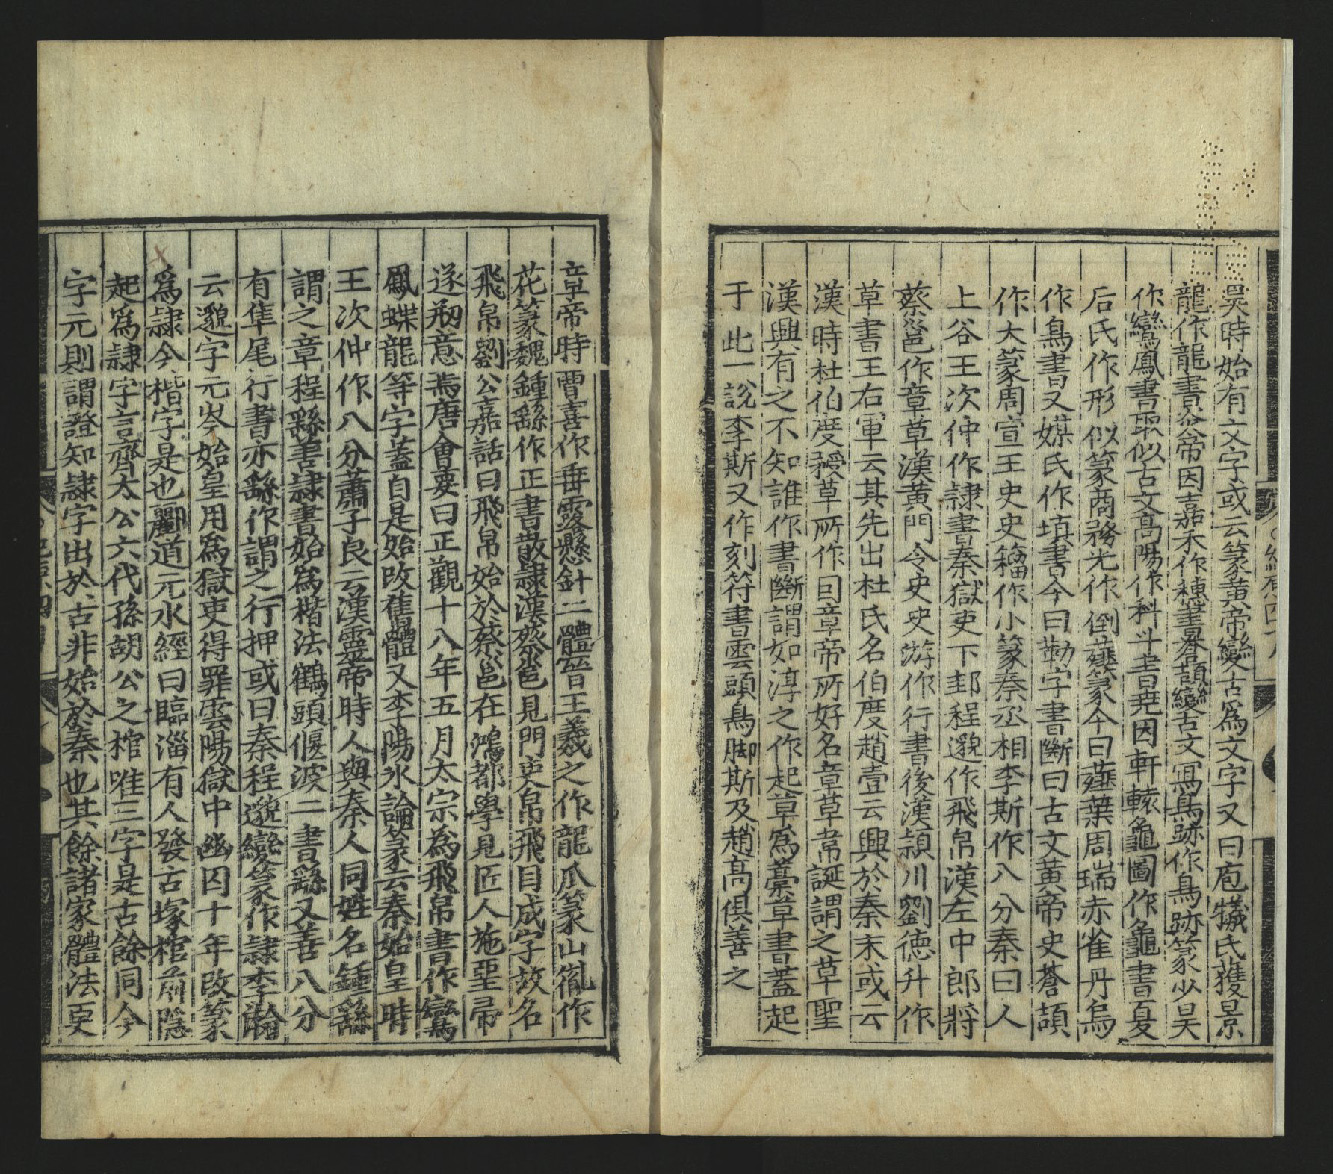 昊時始有文字或云篆黃帝變古爲文字又曰庖犧氏獲景
龍作龍書炎帝因嘉禾作穗書蒼頡變古文寫鳥跡作鳥跡篆少昊
作鸞鳳書取似古文高陽作科斗書堯因軒轅龜圖作龜書夏
后氏作形似篆商務光作倒薤篆今曰薤葉周瑞赤雀丹烏
作鳥書又媒氏作填書今曰勒字書斷曰古文黃帝史蒼頡
作大篆周宣王史史籀作小篆秦丞相李斯作八分秦曰人
上谷王次仲作隷書秦獄吏下邽程邈作飛帛漢左中郎將
蔡邕作章草漢黃門令史史游作行書後漢潁川劉德升作
草書王右軍云其先出杜氏名伯度趙壹云興於秦末或云
漢時杜伯度授草所作曰章帝所好名章草韋誕謂之草聖
漢興有之不知誰作書斷謂如淳之作起草爲藁草書蓋起
于此一說李斯又作刻符書雲頭鳥脚斯及趙高俱善之
章帝時曹喜作垂露懸針二體晉王羲之作龍爪篆山胤作
花篆魏鍾繇作正書散隷漢蔡邕見門吏帛飛目成字故名
飛帛劉公嘉話曰飛帛始於蔡邕在鴻都學見匠人施堊帚
遂刱意焉唐會要曰正觀十八年五月太宗為飛帛書作鸞
鳳蝶龍等字蓋自是始改舊體又李陽氷論篆云秦始皇時
王次仲作八分蕭子良云漢靈帝時人與秦人同姓名鍾繇
謂之章程繇善隷書始爲楷法鶴頭偃波二書繇又善八分
有隼尾行書亦繇作謂之行押或曰秦程邈變篆作隷李瀚
云邈字元岑始皇用爲獄吏得罪雲陽獄中幽囚十年改篆
爲隷今楷字是也酈道元水經曰臨淄有人發古塚棺前隱
起爲隷字言齊太公六代孫胡公之棺唯三字是古餘同今
字元則謂證知隷字出於古非始於秦也其餘諸家體法更